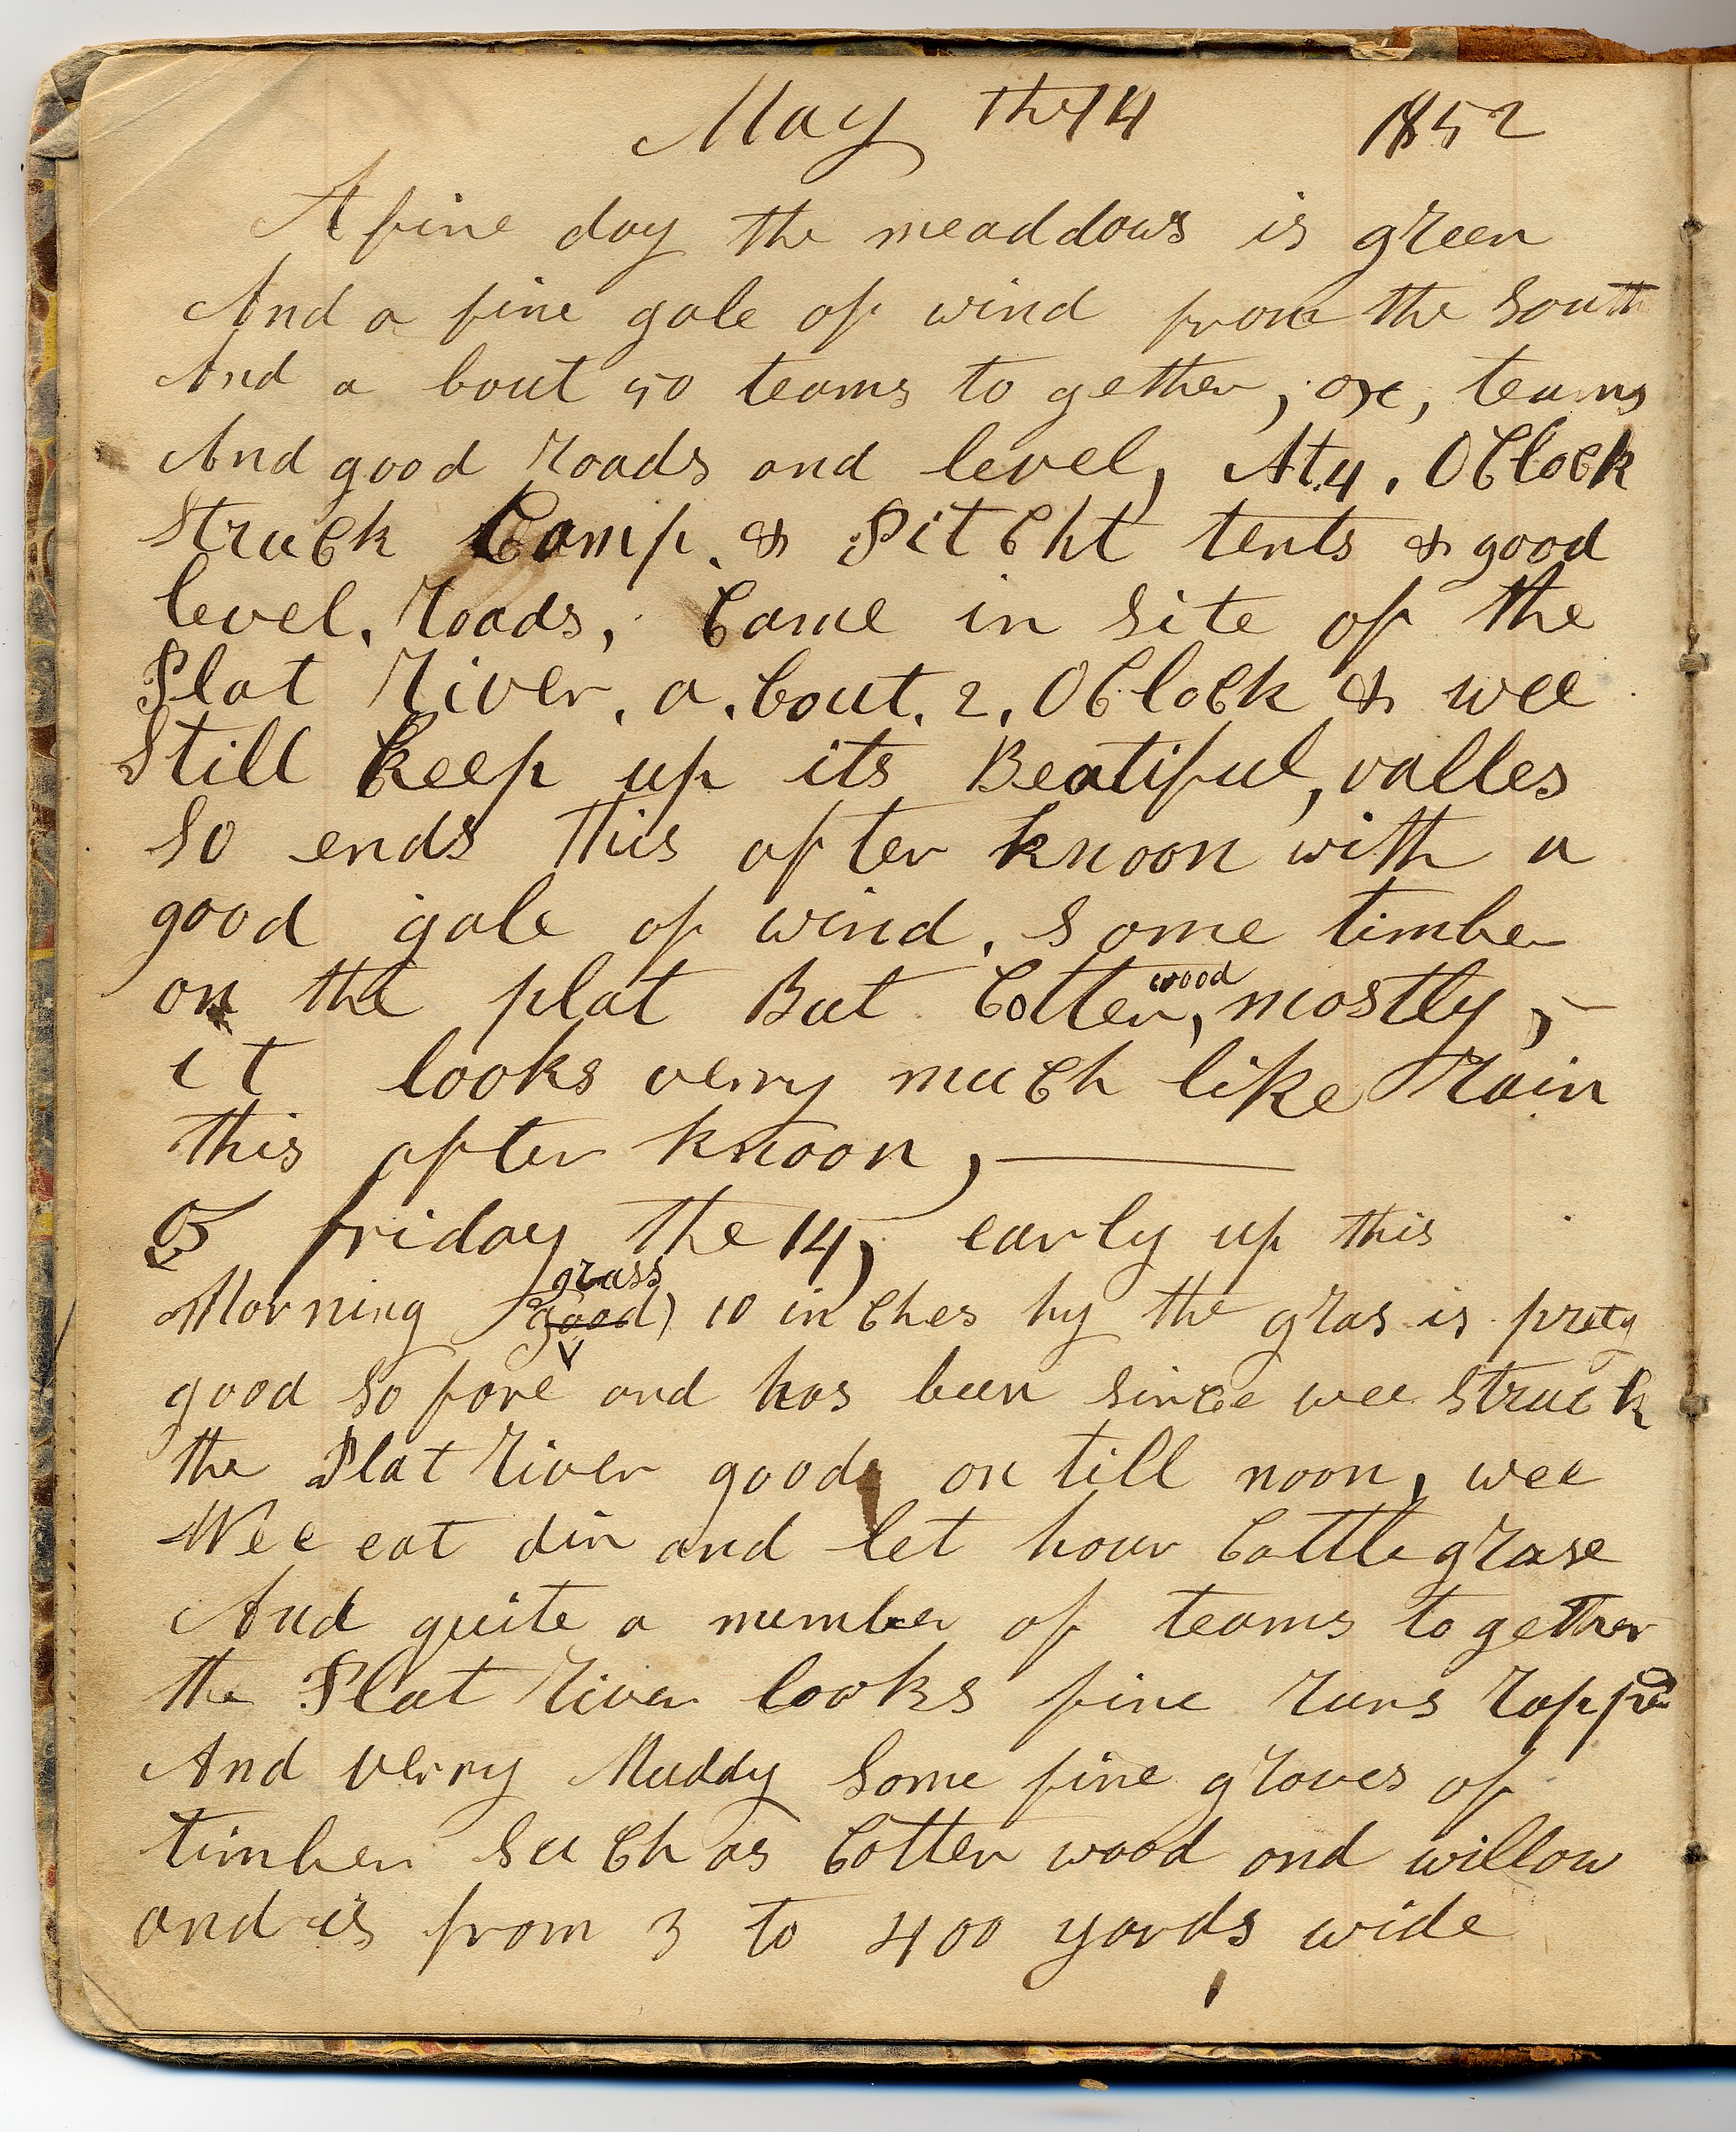 May the 14 1852
A fine day the meaddows is green
And a fine gale of wind from the South
And a bout 50 teams to gether, ox, teams
And good roads and level, At 4. OClock
Struck Camp. & Pitcht tents & good
level. roads, Came in site of the
Plat river. a. bout. 2. OClock & wee
Still keep up its Beatiful, valles
So ends this after knoon with a
good gale of wind. some timber
on the plat But Cotten wood, mostly,
it looks verry much like rain
this after knoon,
friday the 14, early up this
Morning grass good) 10 inches hy the gras is prety
good so fore and has been since wee struck
the Plat river good on till noon, wee
Wee eat din and let hour Cattle grase
And quite a number of teams to gether
the Plat river looks fine runs
And verry Muddy Some fine groves of
timber such as Cotten wood and willow
and is from 3 to 400 yards wide